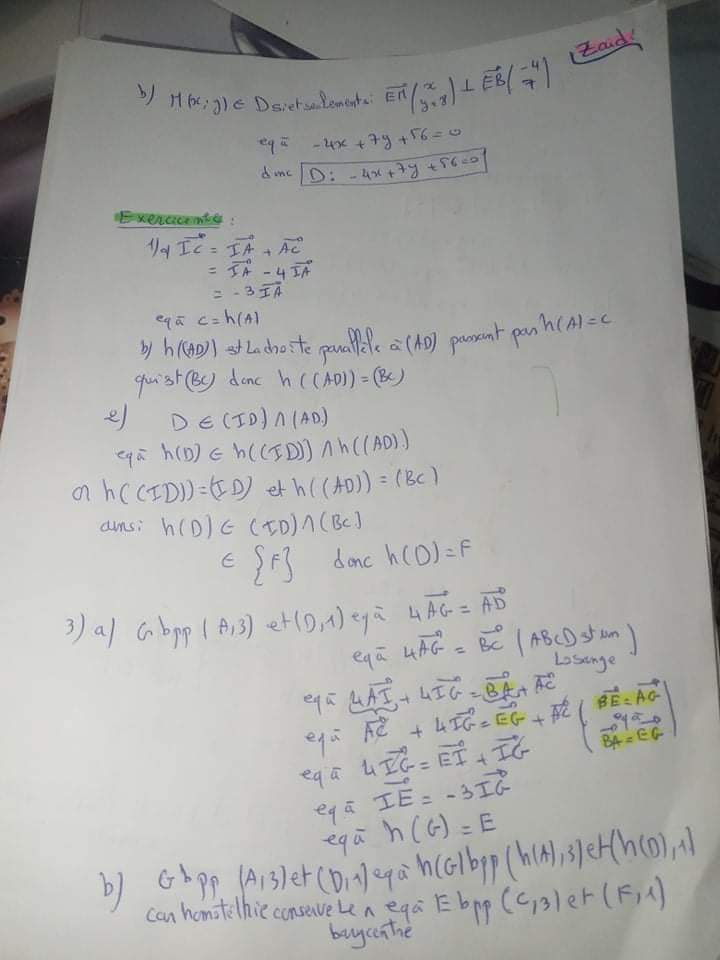 Zaidi
b) M(x; y) ∈ D si et seulement si: EM→ (x y+8) ⊥ EB→ (-4 7)
eq à -4x + 7y + 56 = 0
donc D: -4x + 7y + 56 = 0
Exercice n°2 :
1) a) IC→ = IA→ + AC→
= IA→ - 4 IA→
= -3 IA→
eq à C = h(A)
b) h((AD)) est la droite parallèle à (AD) passant par h(A) = C
qui est (BC) donc h((AD)) = (BC)
c) D ∈ (ID) ∩ (AD)
eq à h(D) ∈ h((ID)) ∩ h((AD))
or h((ID)) = (ID) et h((AD)) = (BC)
ainsi h(D) ∈ (ID) ∩ (BC)
∈ {F} donc h(D) = F
3) a) G bpp (A,3) et (D,1) eq à 4AG→ = AD→
eq à 4AG→ = BC→ (ABCD est un losange)
eq à 4AI→ + 4IG→ = BA→ + AC→
eq à AC→ + 4IG→ = EG→ + AC→ (BE→ = AG→ eq à BA→ = EG→)
eq à 4IG→ = EI→ + IG→
eq à IE→ = -3IG→
eq à h(G) = E
b) G bpp (A,3) et (D,1) eq à h(G) bpp (h(A),3) et (h(D),1)
car homotéthie conserve le eq à E bpp (C,3) et (F,1)
barycentre